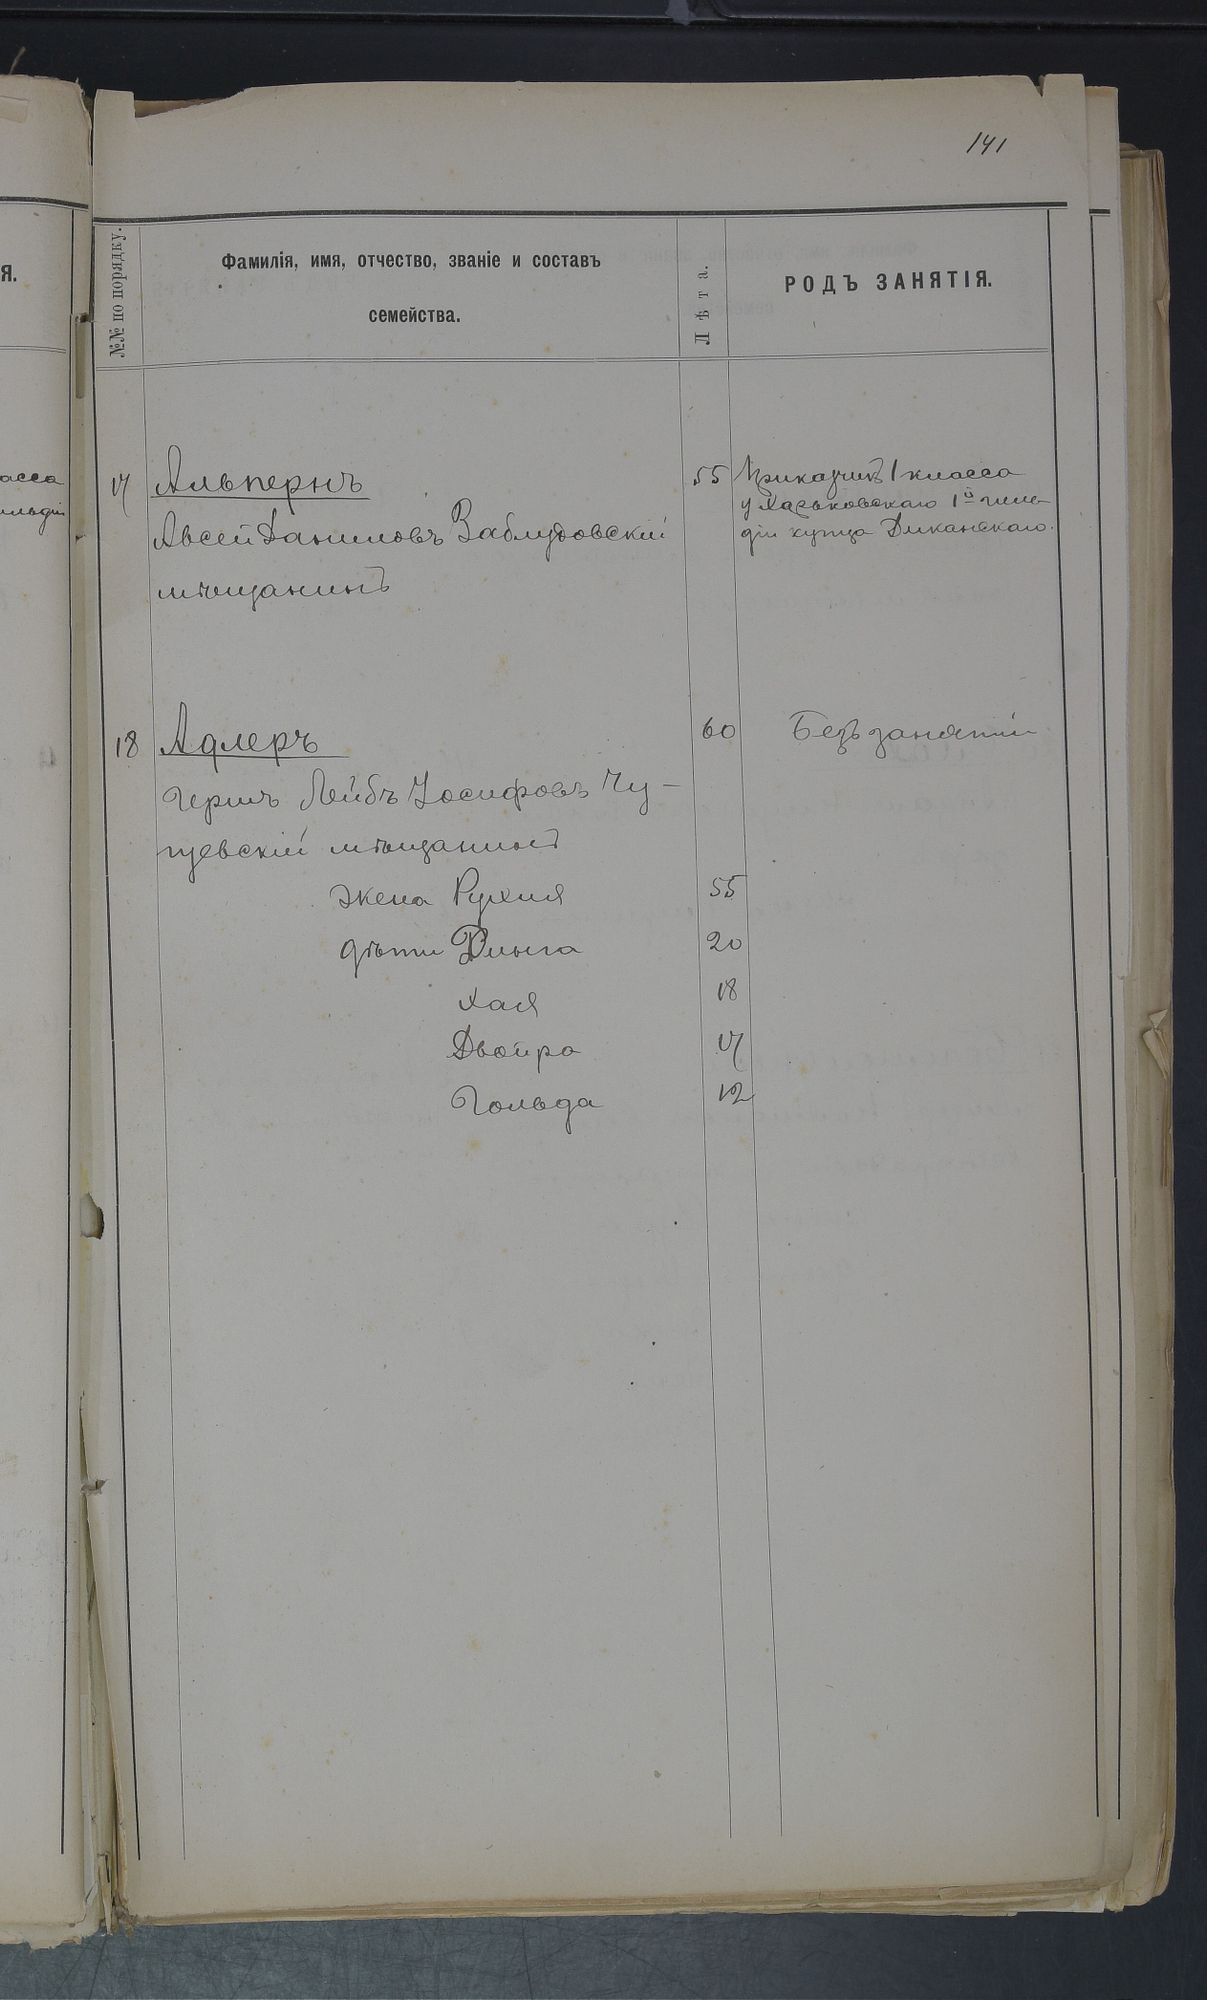 141
№№ по порядку.
Фамилія, имя, отчество, званіе и составъ
семейства.
Лѣта.
РОДЪ ЗАНЯТІЯ.
Я.
асса
ильдіи
17 Альпернъ 55 Приказчикъ 1 класса
у Харьковскаго 1й гиль-
Авсей Даниловъ Заблудовскій діи купца Диканскаго.
мѣщанинъ
18 Адлеръ 60 Безъ занятій
Гершъ Лейбъ Іосифовъ Чу-
гуевскій мѣщанинъ
жена Рухля 55
дѣти 20
Хая 18
Двойра 17
Гольда 12